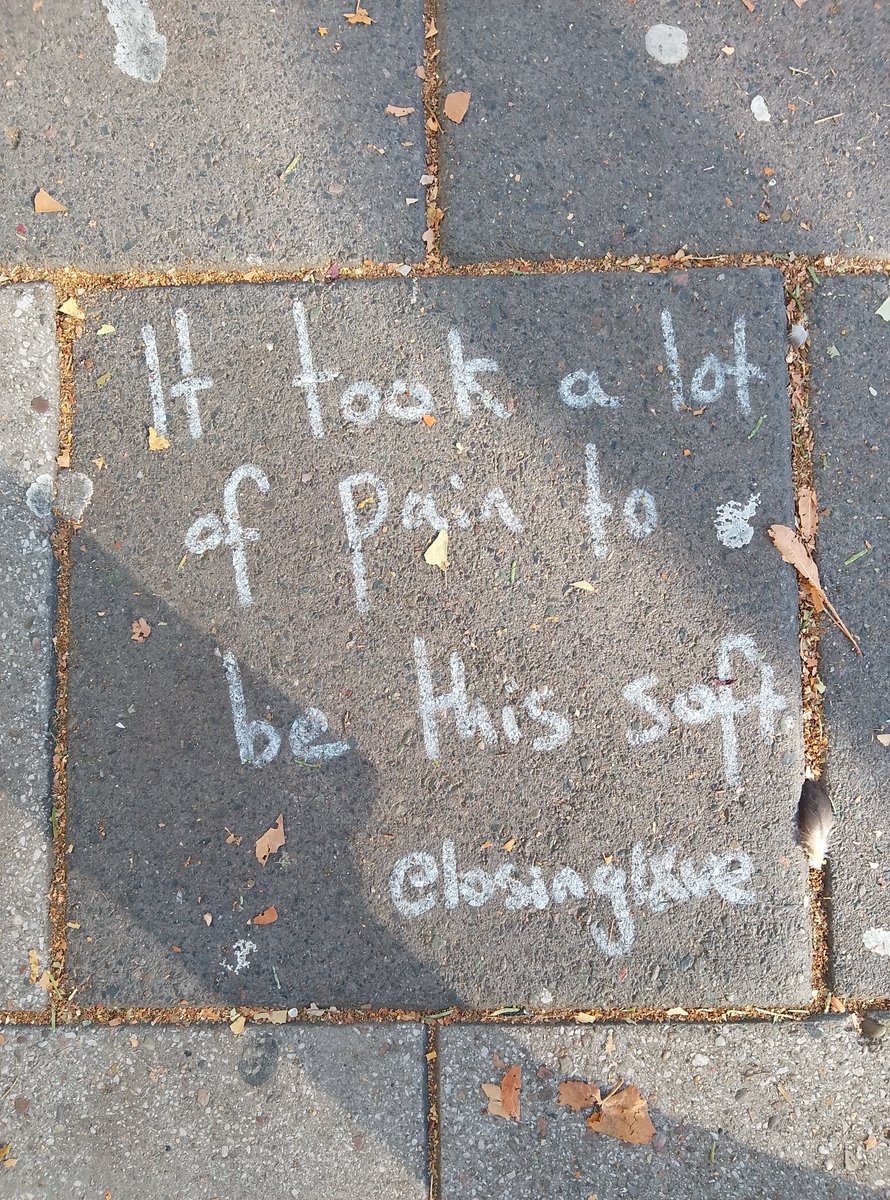 It took a lot
of pain to
be this soft.
@losinglxve